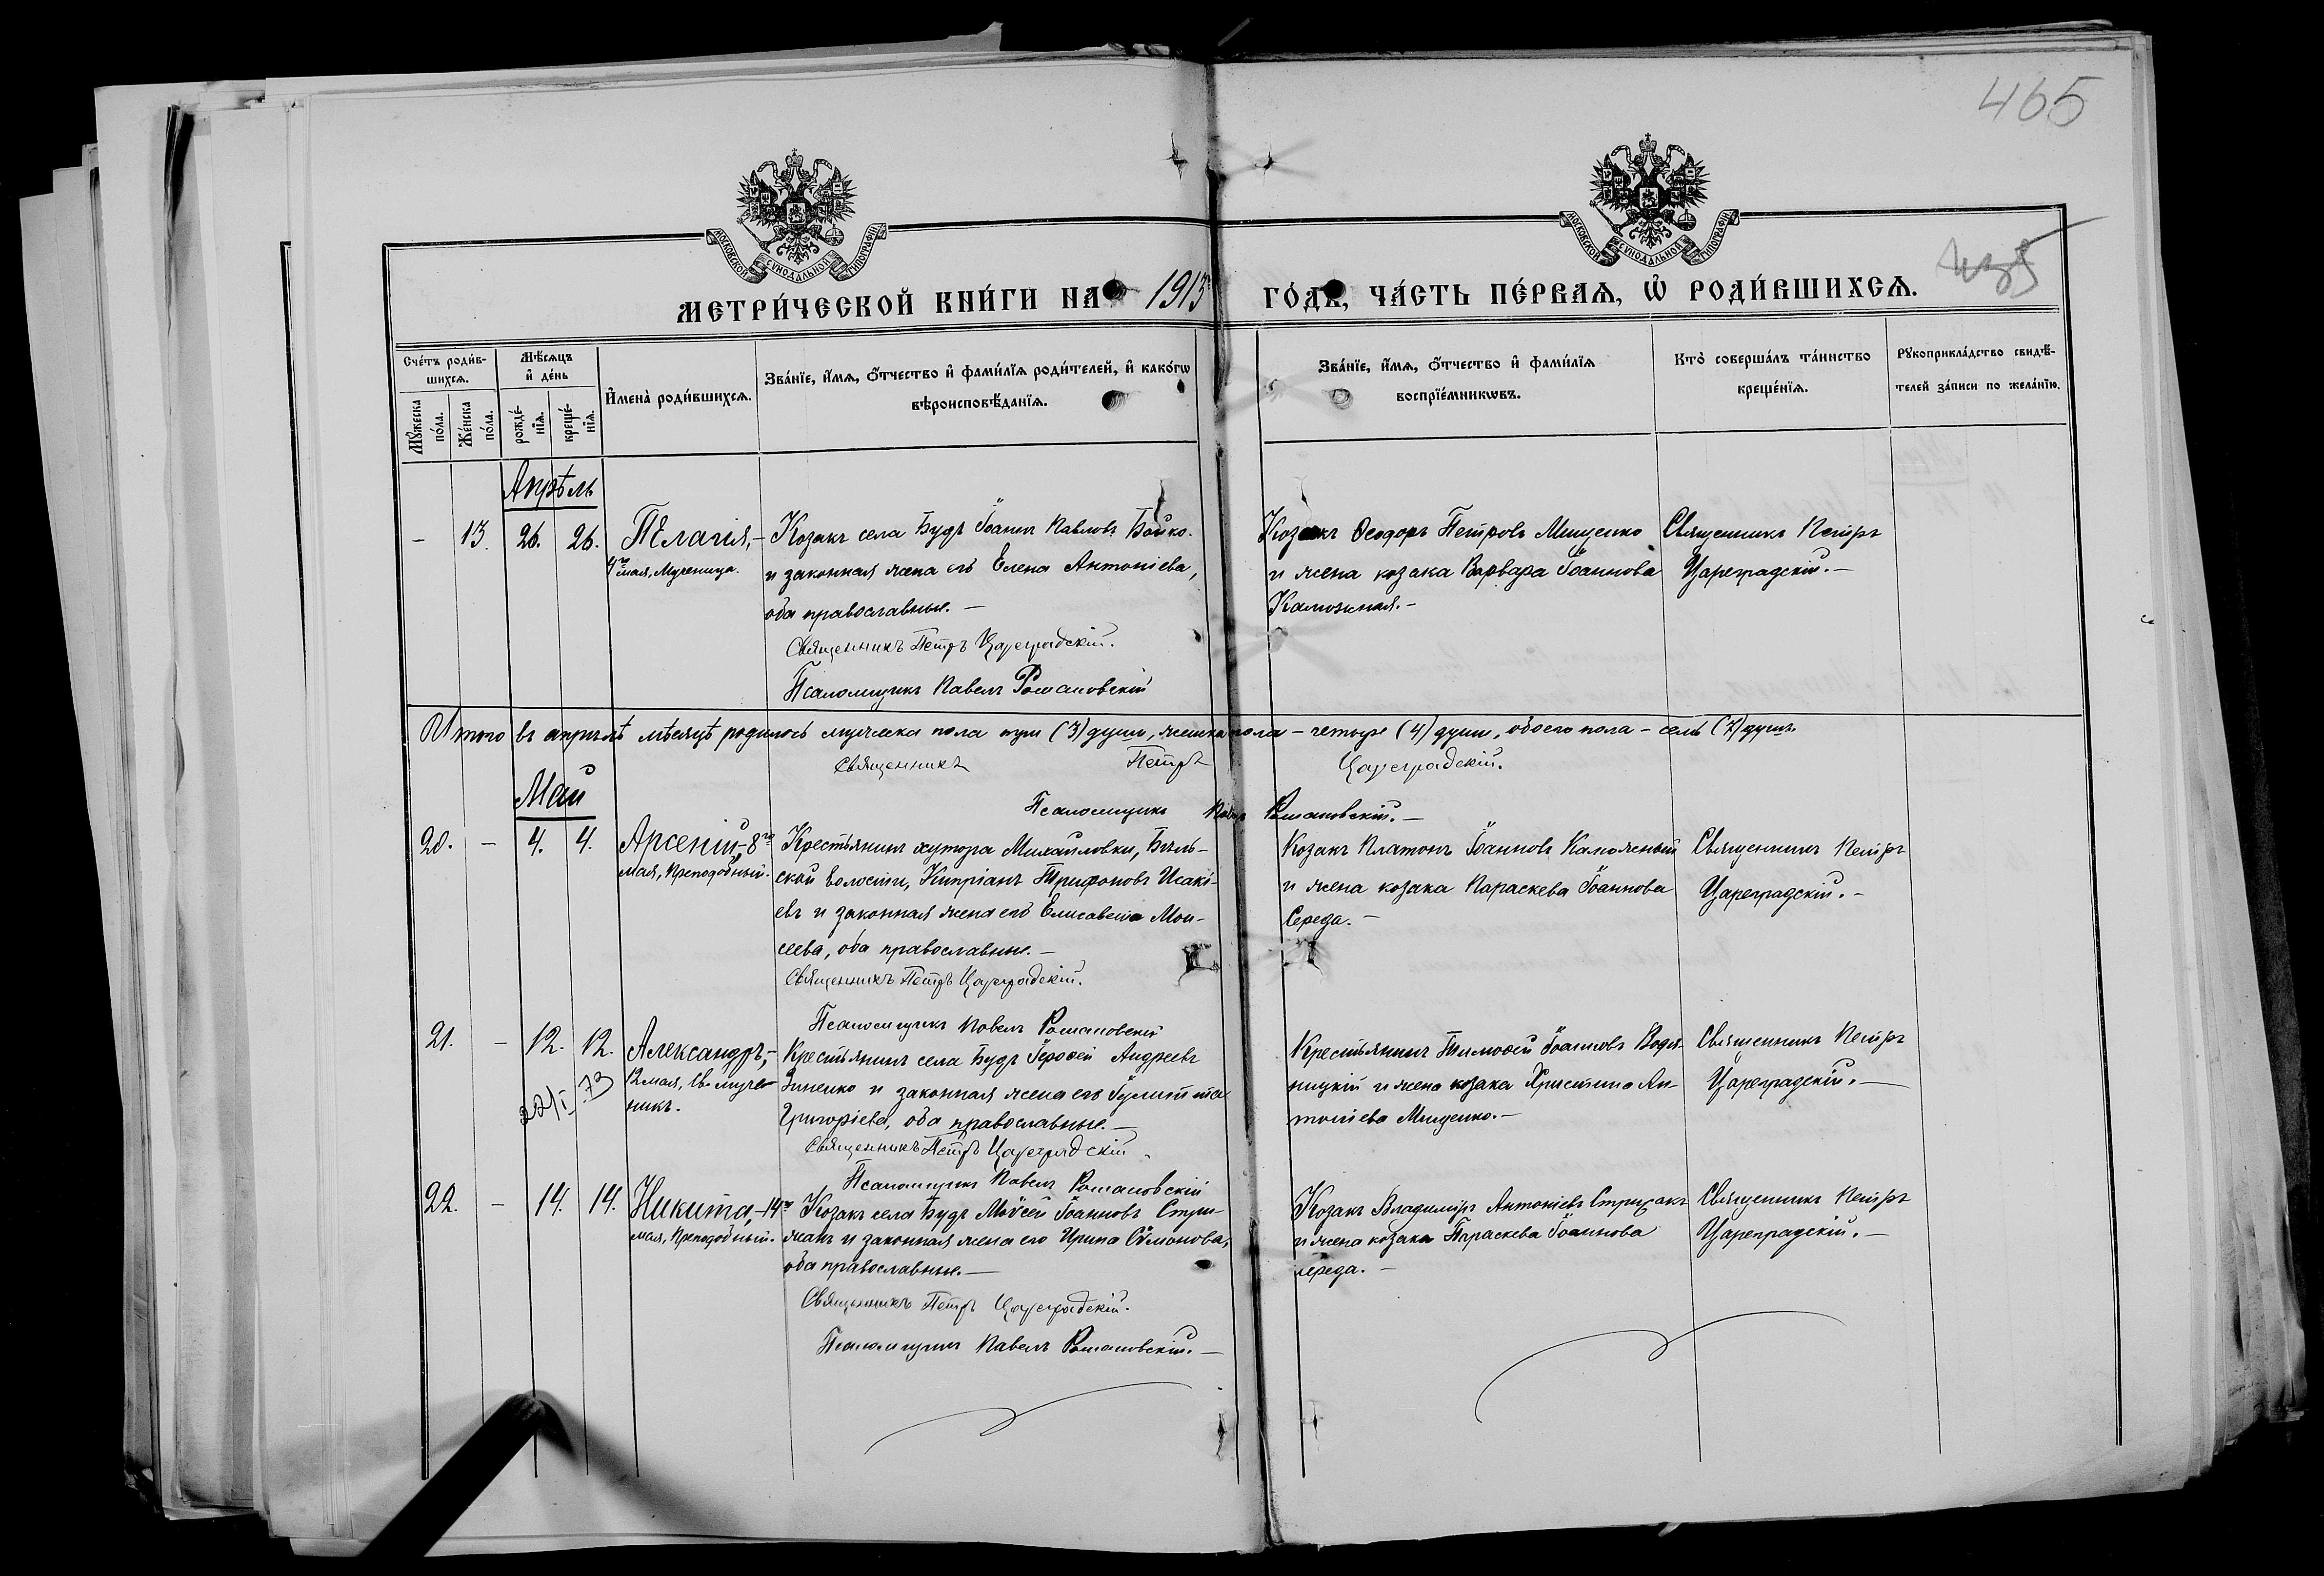 465
МОСКОВСКОЙ СУНОДАЛЬНОЙ ТИПОГРАФІИ
МОСКОВСКОЙ СУНОДАЛЬНОЙ ТИПОГРАФІИ
МЕТРИ́ЧЕСКОЙ КНИ́ГИ НА 1913 ГО́ДЪ, ЧА́СТЬ ПЕ́РВАѦ, Ѡ҆ РОДИ́ВШИХСѦ.
Сче́тъ роди́в-
шихсѧ.
Мꙋ́жеска по́ла.
Же́нска по́ла.
Мѣ́сѧцъ
и҆ де́нь
рожде́-
нїѧ.
креще́-
нїѧ.
И҆мена̀ роди́вшихсѧ.
Зва́нїе, и҆́мѧ, ѻ҆́тчество и҆ фами́лїѧ роди́телей, и҆ како́гѡ
вѣроисповѣ́данїѧ.
Зва́нїе, и҆́мѧ, ѻ҆́тчество и҆ фами́лїѧ
воспрїе́мникѡвъ.
Кто̀ соверша́лъ та́инство
креще́нїѧ.
Рꙋкоприкла́дство свидѣ́-
телей за́писи по жела́нїю.
Апрѣль
- 13. 26. 26. Пелагія, -
4го мая, Мученица.
Козакъ села Будъ Іоаннъ Павловъ Бойко.
и законная жена его Елена Антоніева,
оба православные. -
Священникъ Петръ Цареградскій.
Псаломщикъ Павелъ Романовскій
Козакъ Ѳеодоръ Петровъ Мищенко
и жена козака Варвара Іоаннова
Калюжная. -
Священникъ Петръ
Цареградскій. -
Итого въ апрѣлѣ мѣсяцѣ родилось мужеска пола три (3) души, женска пола - четыре (4) души, обоего пола - семь (7) душъ
Священникъ Петръ Цареградскій.
Май
Псаломщикъ Павелъ Романовскій. -
20. - 4. 4. Арсеній, - 8го
мая, Преподобный.
Крестьянинъ хутора Михайловки, Бѣль-
ской волости, Кипріанъ Трифоновъ Исакі-
евъ и законная жена его Елисавета Мои-
сеева, оба православные. -
Священникъ Петръ Цареградскій.
Псаломщикъ Павелъ Романовскій
Козакъ Платонъ Іоанновъ Калюжный
и жена козака Параскева Іоаннова
Середа. -
Священникъ Петръ
Цареградскій. -
21. - 12. 12. Александръ, -
12 мая, Св. муче-
никъ.
22/I 73
Крестьянинъ села Будъ Іероѳей Андреевъ
Зиненко и законная жена его Іулитта
Григоріева, оба православные. -
Священникъ Петръ Цареградскій.
Псаломщикъ Павелъ Романовскій
Крестьянинъ Тимоѳей Іоанновъ Водя-
ницкій и жена козака Христина Ан-
тоніева Мищенко. -
Священникъ Петръ
Цареградскій. -
22. - 14. 14. Никита, - 14го
мая, Преподобный.
Козакъ села Будъ Мойсей Іоанновъ Стри-
жакъ и законная жена его Ирина Сѵмонова,
оба православные. -
Священникъ Петръ Цареградскій.
Псаломщикъ Павелъ Романовскій. -
Козакъ Владиміръ Антоніевъ Стрижакъ
и жена козака Параскева Іоаннова
Середа. -
Священникъ Петръ
Цареградскій. -